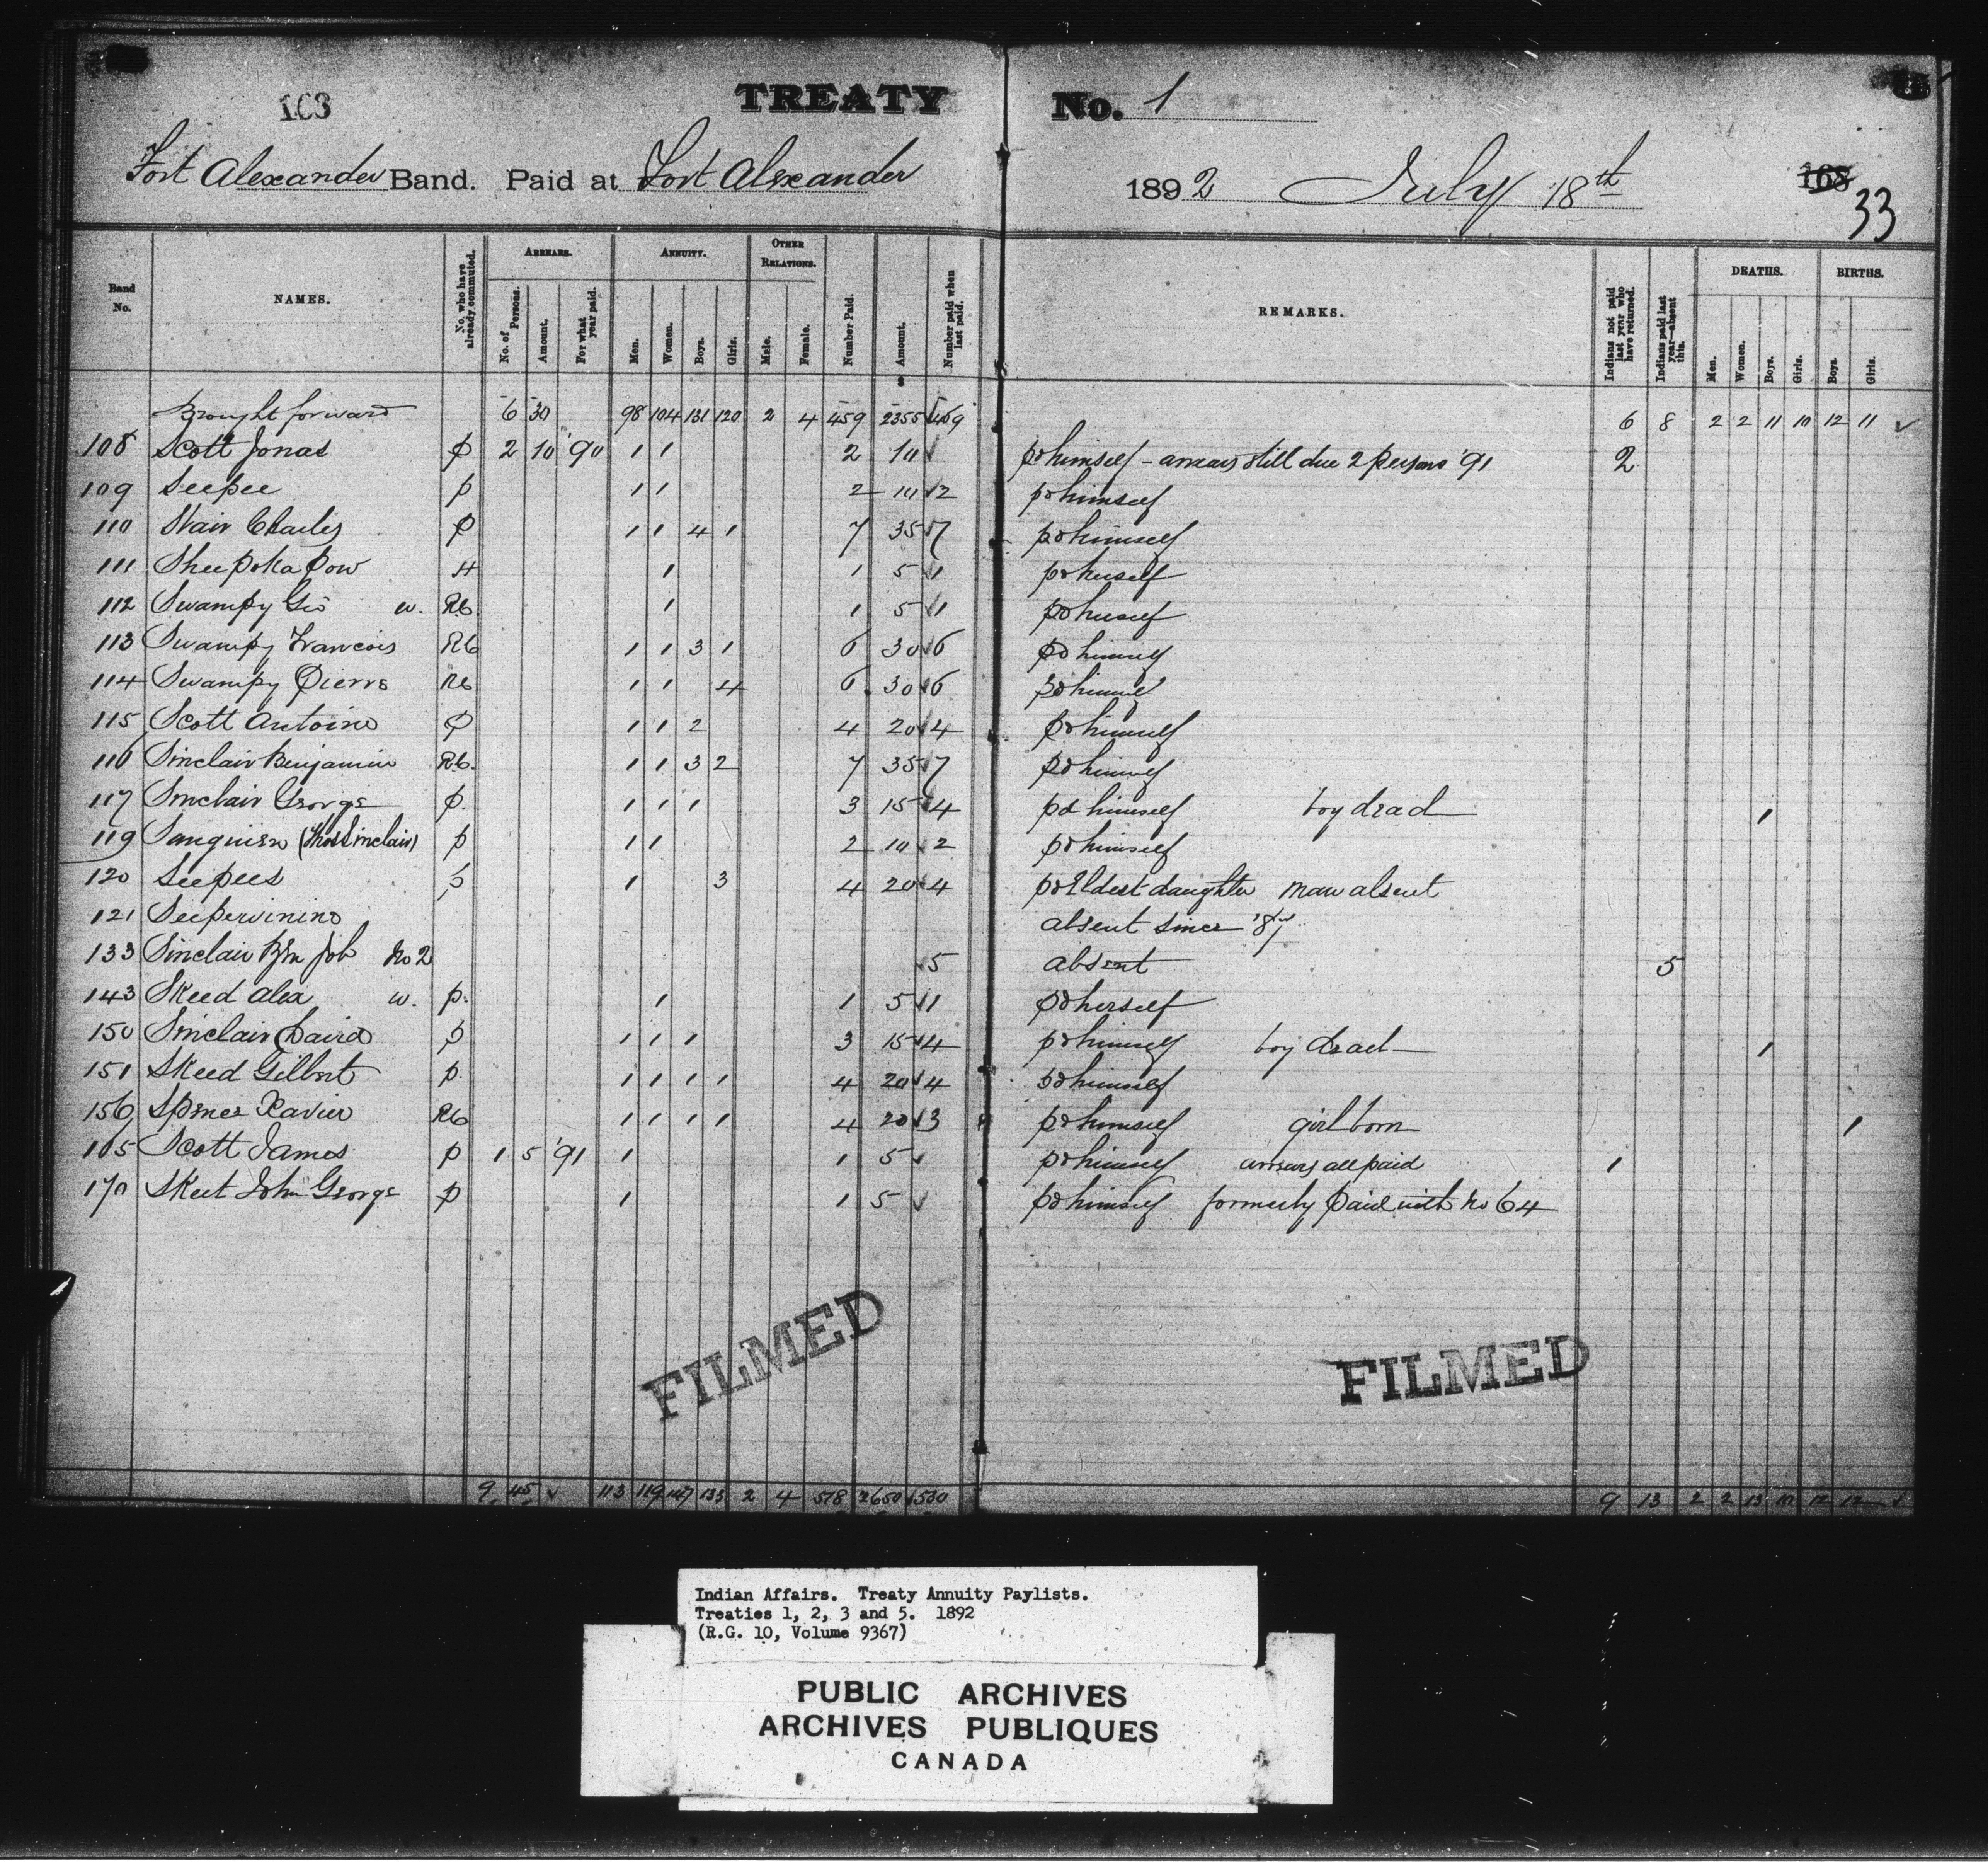 103
TREATY No. 1
Fort Alexander Band. Paid at Fort Alexander 1892 July 18th 168 33
Band No. NAMES. No. who have already commuted. ARREARS. No. of Persons. Amount. For what year paid. ANNUITY. Men. Women. Boys. Girls. OTHER RELATIONS. Male. Female. Number Paid. Amount. Number paid when last paid. REMARKS. Indians not paid last year who have returned. Indians paid last year—absent this. DEATHS. Men. Women. Boys. Girls. BIRTHS. Boys. Girls.
Brought forward 6 30 98 104 131 120 2 4 459 2355 6 8 2 2 11 10 12 11 ✓
108 Scott Jonas p 2 10 '90 1 1 2 10 ✓ pd himself - arrears still due 2 persons '91 2
109 Seepee p 1 1 2 10 ✓ 2 pd himself
110 Stair Charles p 1 1 4 1 7 35 ✓ 7 pd himself
111 Sheepoka Pow H 1 1 5 ✓ 1 pd herself
112 Swampy Geo w. RC 1 1 5 ✓ 1 pd herself
113 Swampy Francois RC 1 1 3 1 6 30 ✓ 6 pd himself
114 Swampy Pierre RC 1 1 4 6 30 ✓ 6 pd himself
115 Scott Antoine p 1 1 2 4 20 ✓ 4 pd himself
116 Sinclair Benjamin RC. 1 1 3 2 7 35 ✓ 7 pd himself
117 Sinclair George p. 1 1 1 3 15 ✓ 4 pd himself boy dead 1
119 (Thos Sinclair) p 1 1 2 10 ✓ 2 pd himself
120 Seepees p 1 3 4 20 ✓ 4 pd Eldest daughter man absent
121 absent since
133 Sinclair Job No 2 ✓ 5 absent 5
143 Skeed Alex w. p. 1 1 5 ✓ 1 pd herself
150 Sinclair David p 1 1 1 3 15 ✓ 4 pd himself boy dead 1
151 Skeed Gilbert p. 1 1 1 1 4 20 ✓ 4 pd himself
156 Spence Xavier RC 1 1 1 1 4 20 ✓ 3 pd himself girl born 1
165 Scott James p 1 5 '91 1 1 5 ✓ pd himself arrears all paid 1
170 Skeet John George p 1 1 5 ✓ pd himself formerly paid with No 64
FILMED FILMED
9 45 ✓ 113 119 147 133 2 4 518 2650 ✓ 530 9 13 2 2 13 10 12 12 ✓
Indian Affairs. Treaty Annuity Paylists.
Treaties 1, 2, 3 and 5. 1892
(R.G. 10, Volume 9367)
PUBLIC ARCHIVES
ARCHIVES PUBLIQUES
CANADA